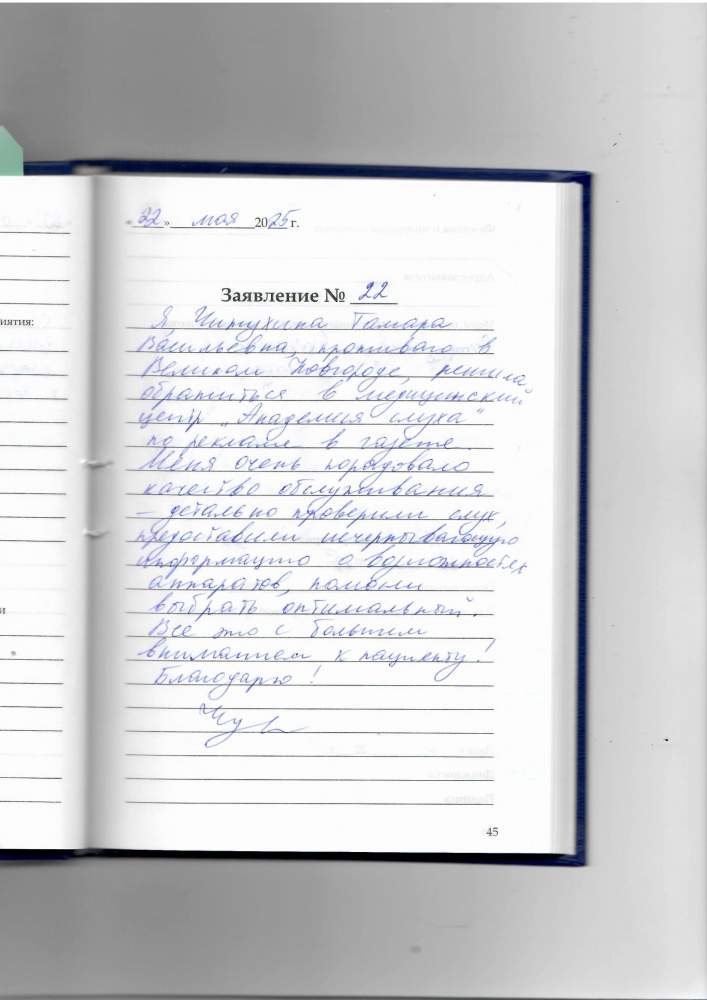 «22» мая 2025 г.
Заявление № 22
Я, Чипухина Тамара
Васильевна, проживаю в
Великом Новгороде, решила
обратиться в медицинский
центр „Академия слуха"
по рекламе в газете.
Меня очень порадовало
качество обслуживания
– детально проверили слух,
предоставили исчерпывающую
информацию о возможностях
аппаратов, помогли
выбрать оптимальный.
Всё это с большим
вниманием к пациенту!
Благодарю!
иятия:
и
45